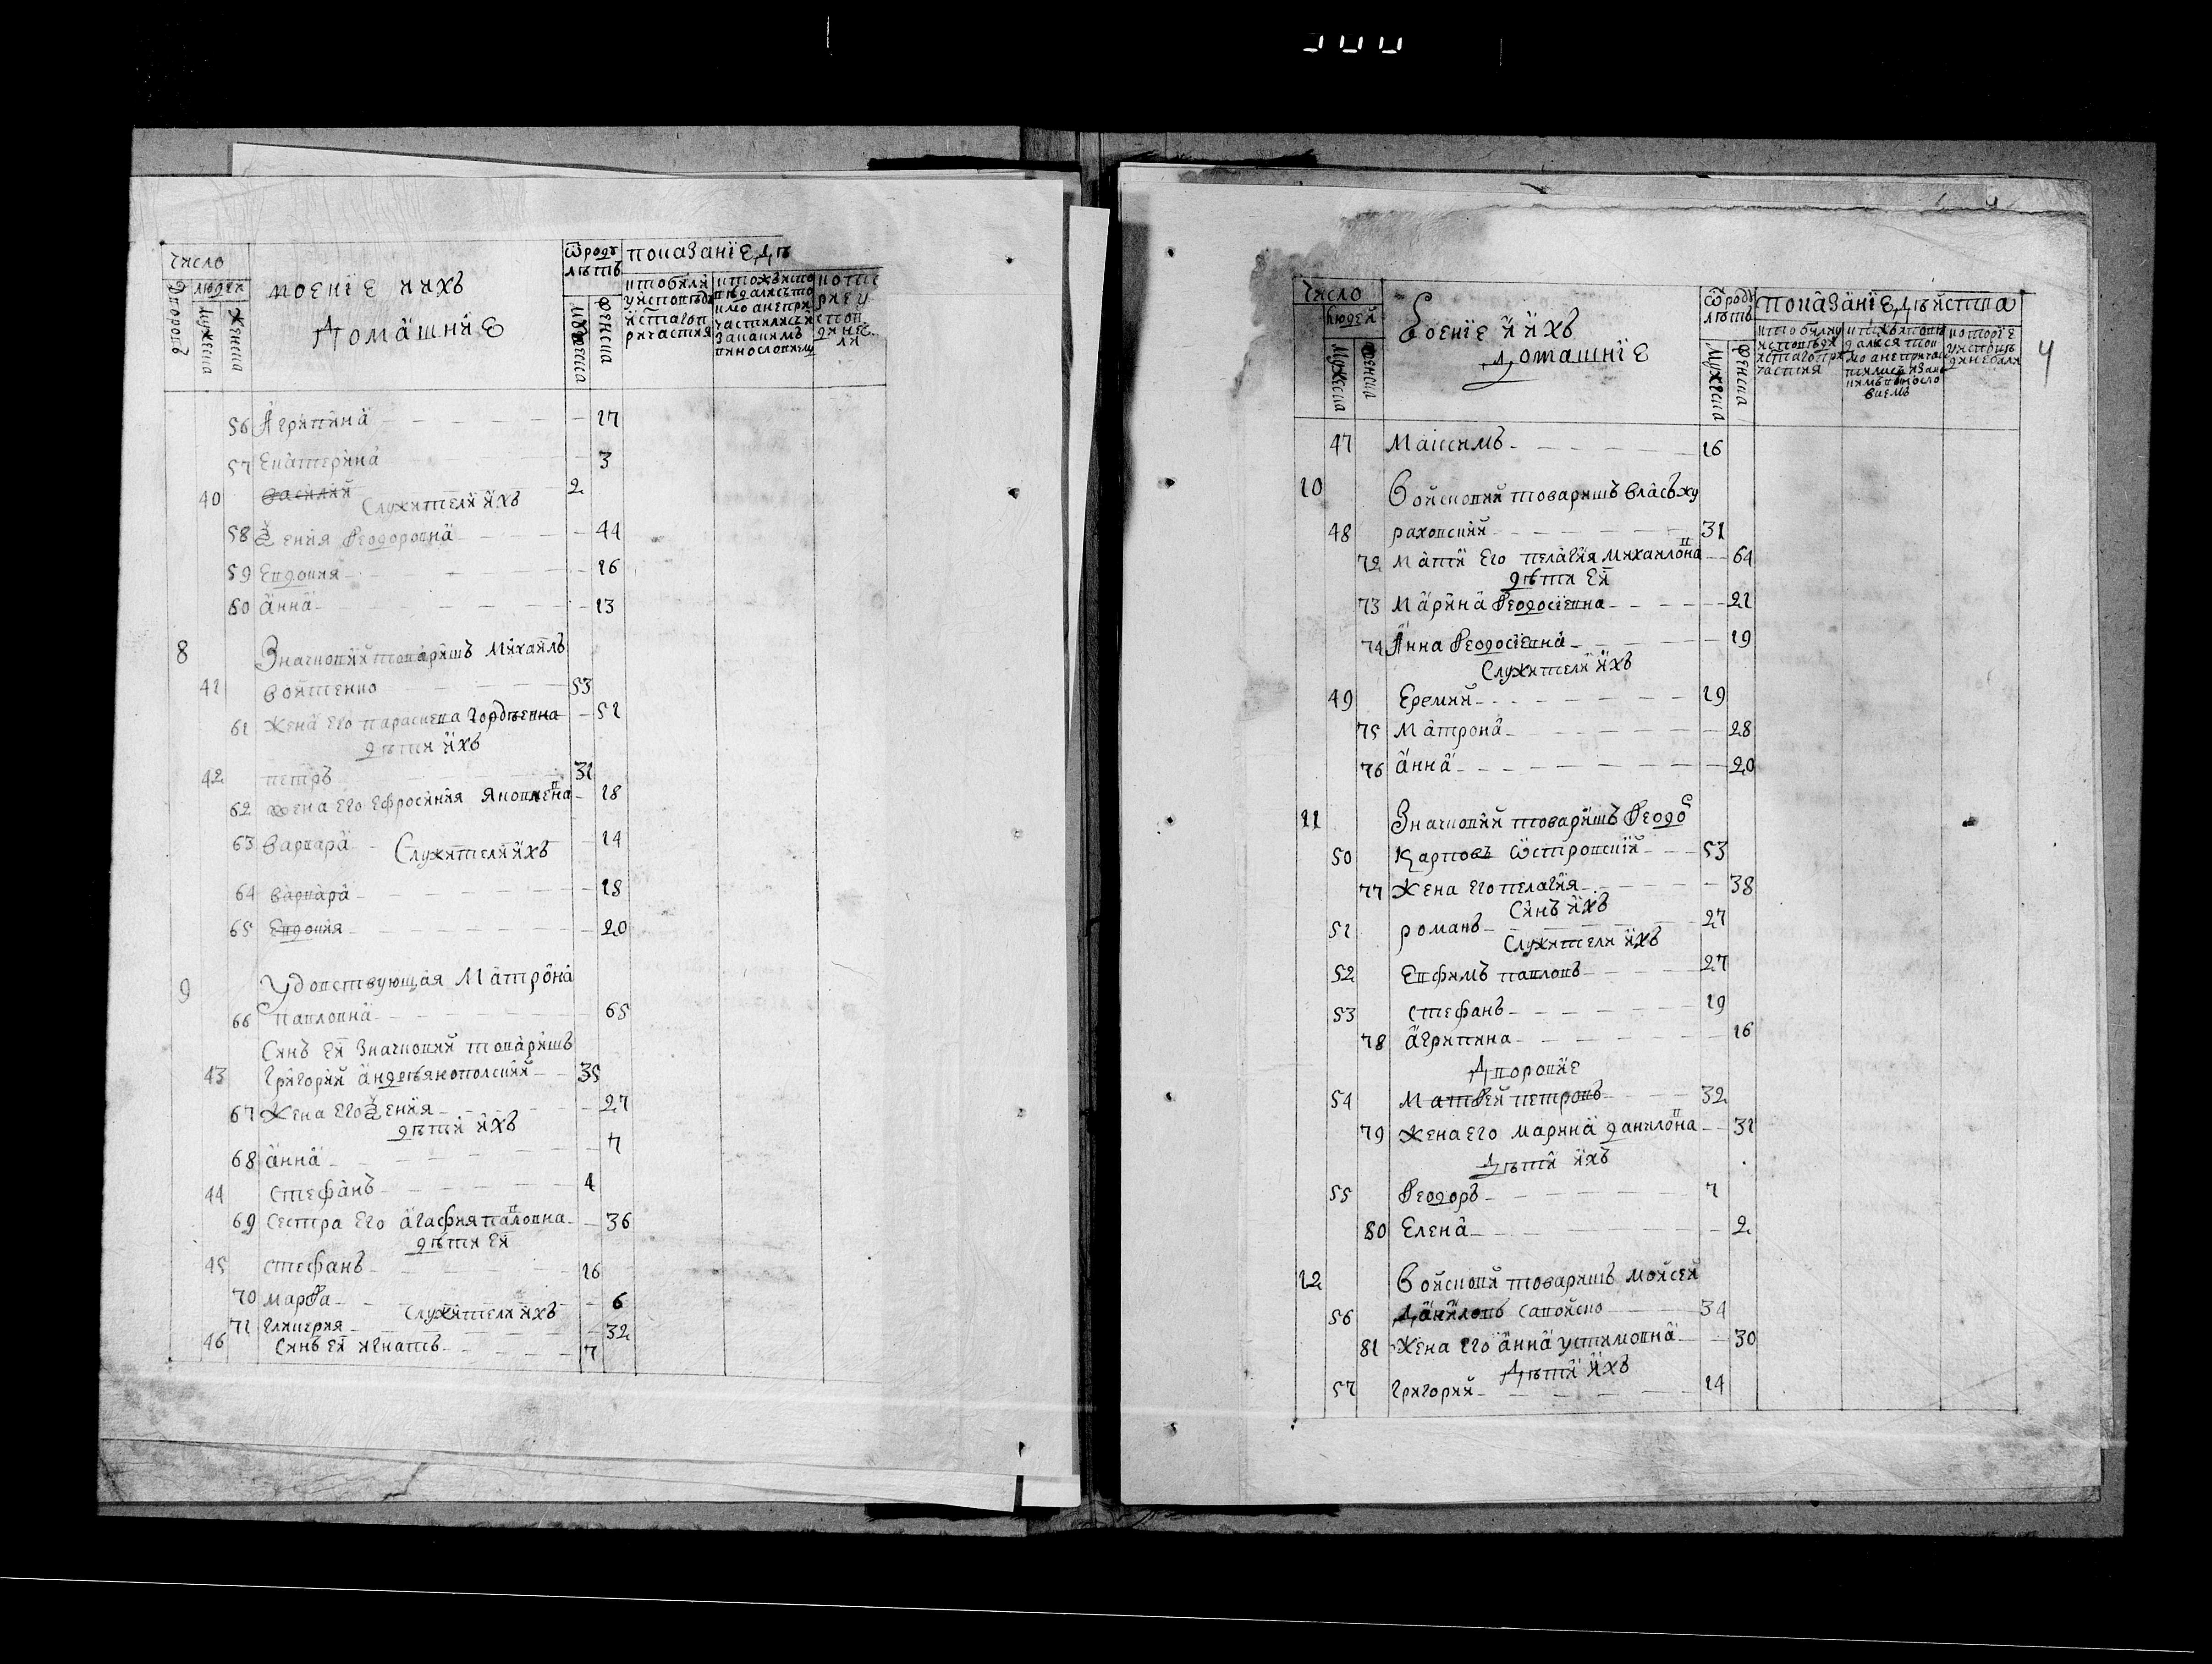 Число
людей
Дворовъ
мужеска
женска
военїе и ихъ
Домашнїе
ѿ роду
лѣтъ
мужеска
женска
показанїе дѣ
56 Агрипина 17
57 Екатерина 3
40 Василий 2
Служители ихъ
58 Ѯенїя Ѳеодоровна 44
59 Евдокия 16
60 Анна 13
8 Значковий товаришъ Михаилъ
41 Войтенко 53
61 Жена его Параскева Гордѣевна 51
дѣти ихъ
42 Петръ 31
62 Жена его Ефросиния Яковлевна 18
63 Варвара 14
Служители ихъ
64 Варвара 18
65 Евдокия 20
9 Удовствующая Матрона
66 Павловна 65
Синъ ея значковий товаришъ
43 Григорий Андрѣянополский 35
67 Жена его Ѯенїя 27
дѣти ихъ
68 Анна 7
44 Стефанъ 4
69 Сестра его Агафия Павловна 36
дѣти ея
45 Стефанъ 16
70 Марѳа 6
Служители ихъ
71 Гликерия 32
46 Синъ ея Игнатъ 7
Число
людей
Мужеска
женска
Военїе и ихъ
домашнїе
ѿ роду
лѣтъ
Мужеска
женска
показанїе дѣиства
4
47 Максимъ 16
10 Войсковий товаришъ Власъ Жу
48 раховский 31
72 Мати его Пелагия Михаиловна 64
дѣти ея
73 Марина Ѳеодосїевна 21
74 Анна Ѳеодосїевна 19
Служители ихъ
49 Еремий 19
75 Матрона 28
76 Анна 20
11 Значковий товаришъ Ѳеодос
50 Карповъ Ѡстровский 53
77 Жена его Пелагия 38
Синъ ихъ
51 Романъ 27
Служители ихъ
52 Евфимъ Павловъ 27
53 Стефанъ 19
78 Агрипина 16
Дворовїе
54 Матѳей Петровъ 32
79 Жена его Марина Даниловна 31
Дѣти ихъ
55 Ѳеодоръ 7
80 Елена 2
12 Войсковий товаришъ Мойсей
56 Даниловъ Сапойско 34
81 Жена его Анна Устимовна 30
Дѣти ихъ
57 Григорий 14